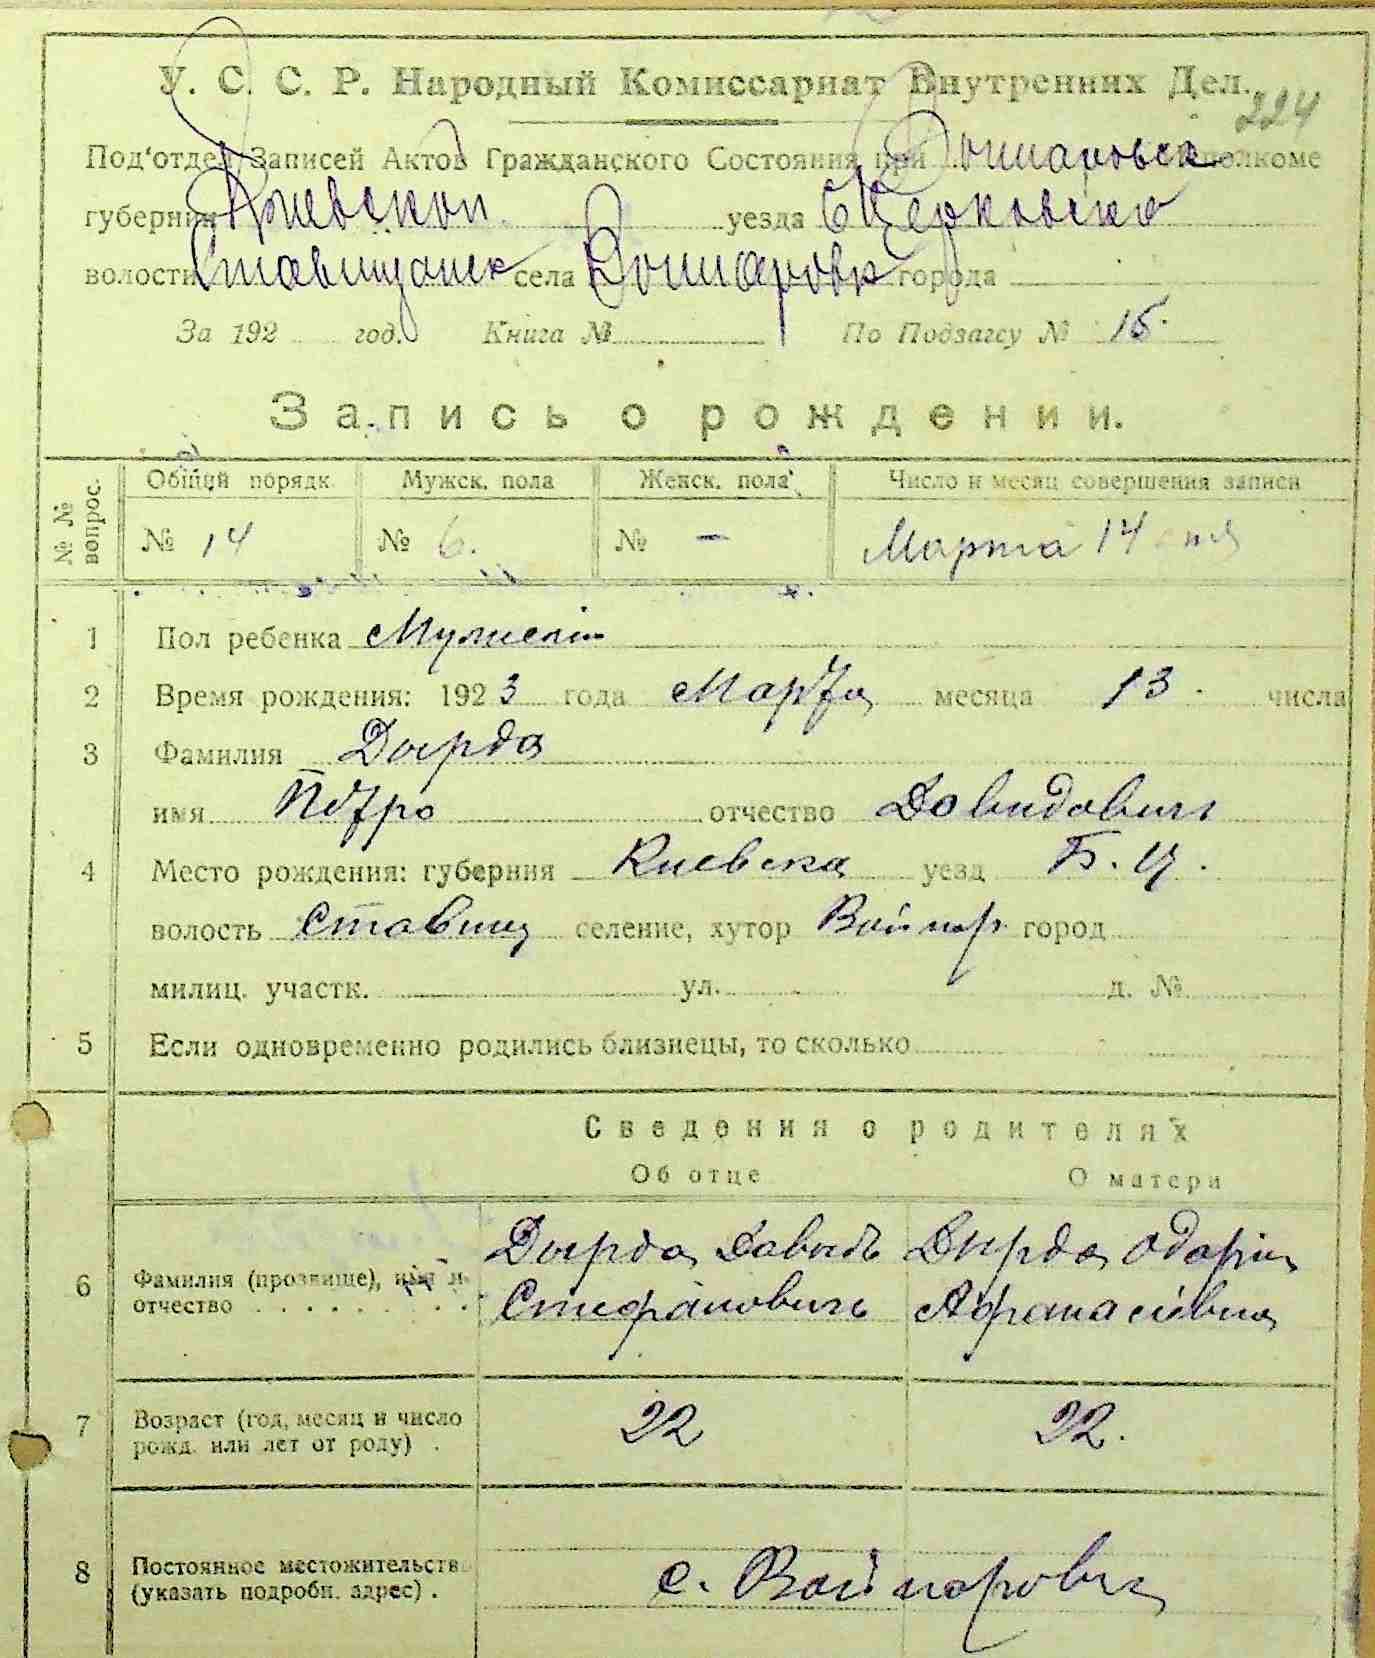 У. С. С. Р. Народный Комиссариат Внутренних Дел.
224
Под'отдел Записей Актов Гражданского Состояния при исполкоме
губернии Киевской уезда БЦерковско
волости Ставищанск села города
За 192 год. Книга № По Подзагсу № 15.
Запись о рождении.
№ № вопрос. Общий порядк. Мужск. пола Женск. пола Число и месяц совершения записи
№ 14 № 6. № — Марта 14 дня
1 Пол ребенка Мужеский
2 Время рождения: 1923 года Марта месяца 13. числа
3 Фамилия Дырда
имя Петро отчество Давидович
4 Место рождения: губерния Киевска уезд Б. Ц.
волость Ставищ селение, хутор город
милиц. участк. ул. д. №
5 Если одновременно родились близнецы, то сколько
Сведения о родителях
Об отце О матери
6 Фамилия (прозвище), имя и Дырда Давыдъ Дырда Одарія
отчество . . . . . . . . . Стефановичъ Афанасіевна
7 Возраст (год, месяц и число 22 22.
рожд. или лет от роду) .
8 Постоянное местожительств с.
(указать подробн. адрес) .